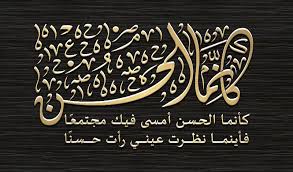 كأنما الحسن
كأنما الحسن أمسى فيك مجتمعًا
فأينما نظرت عيني رأت حسنًا